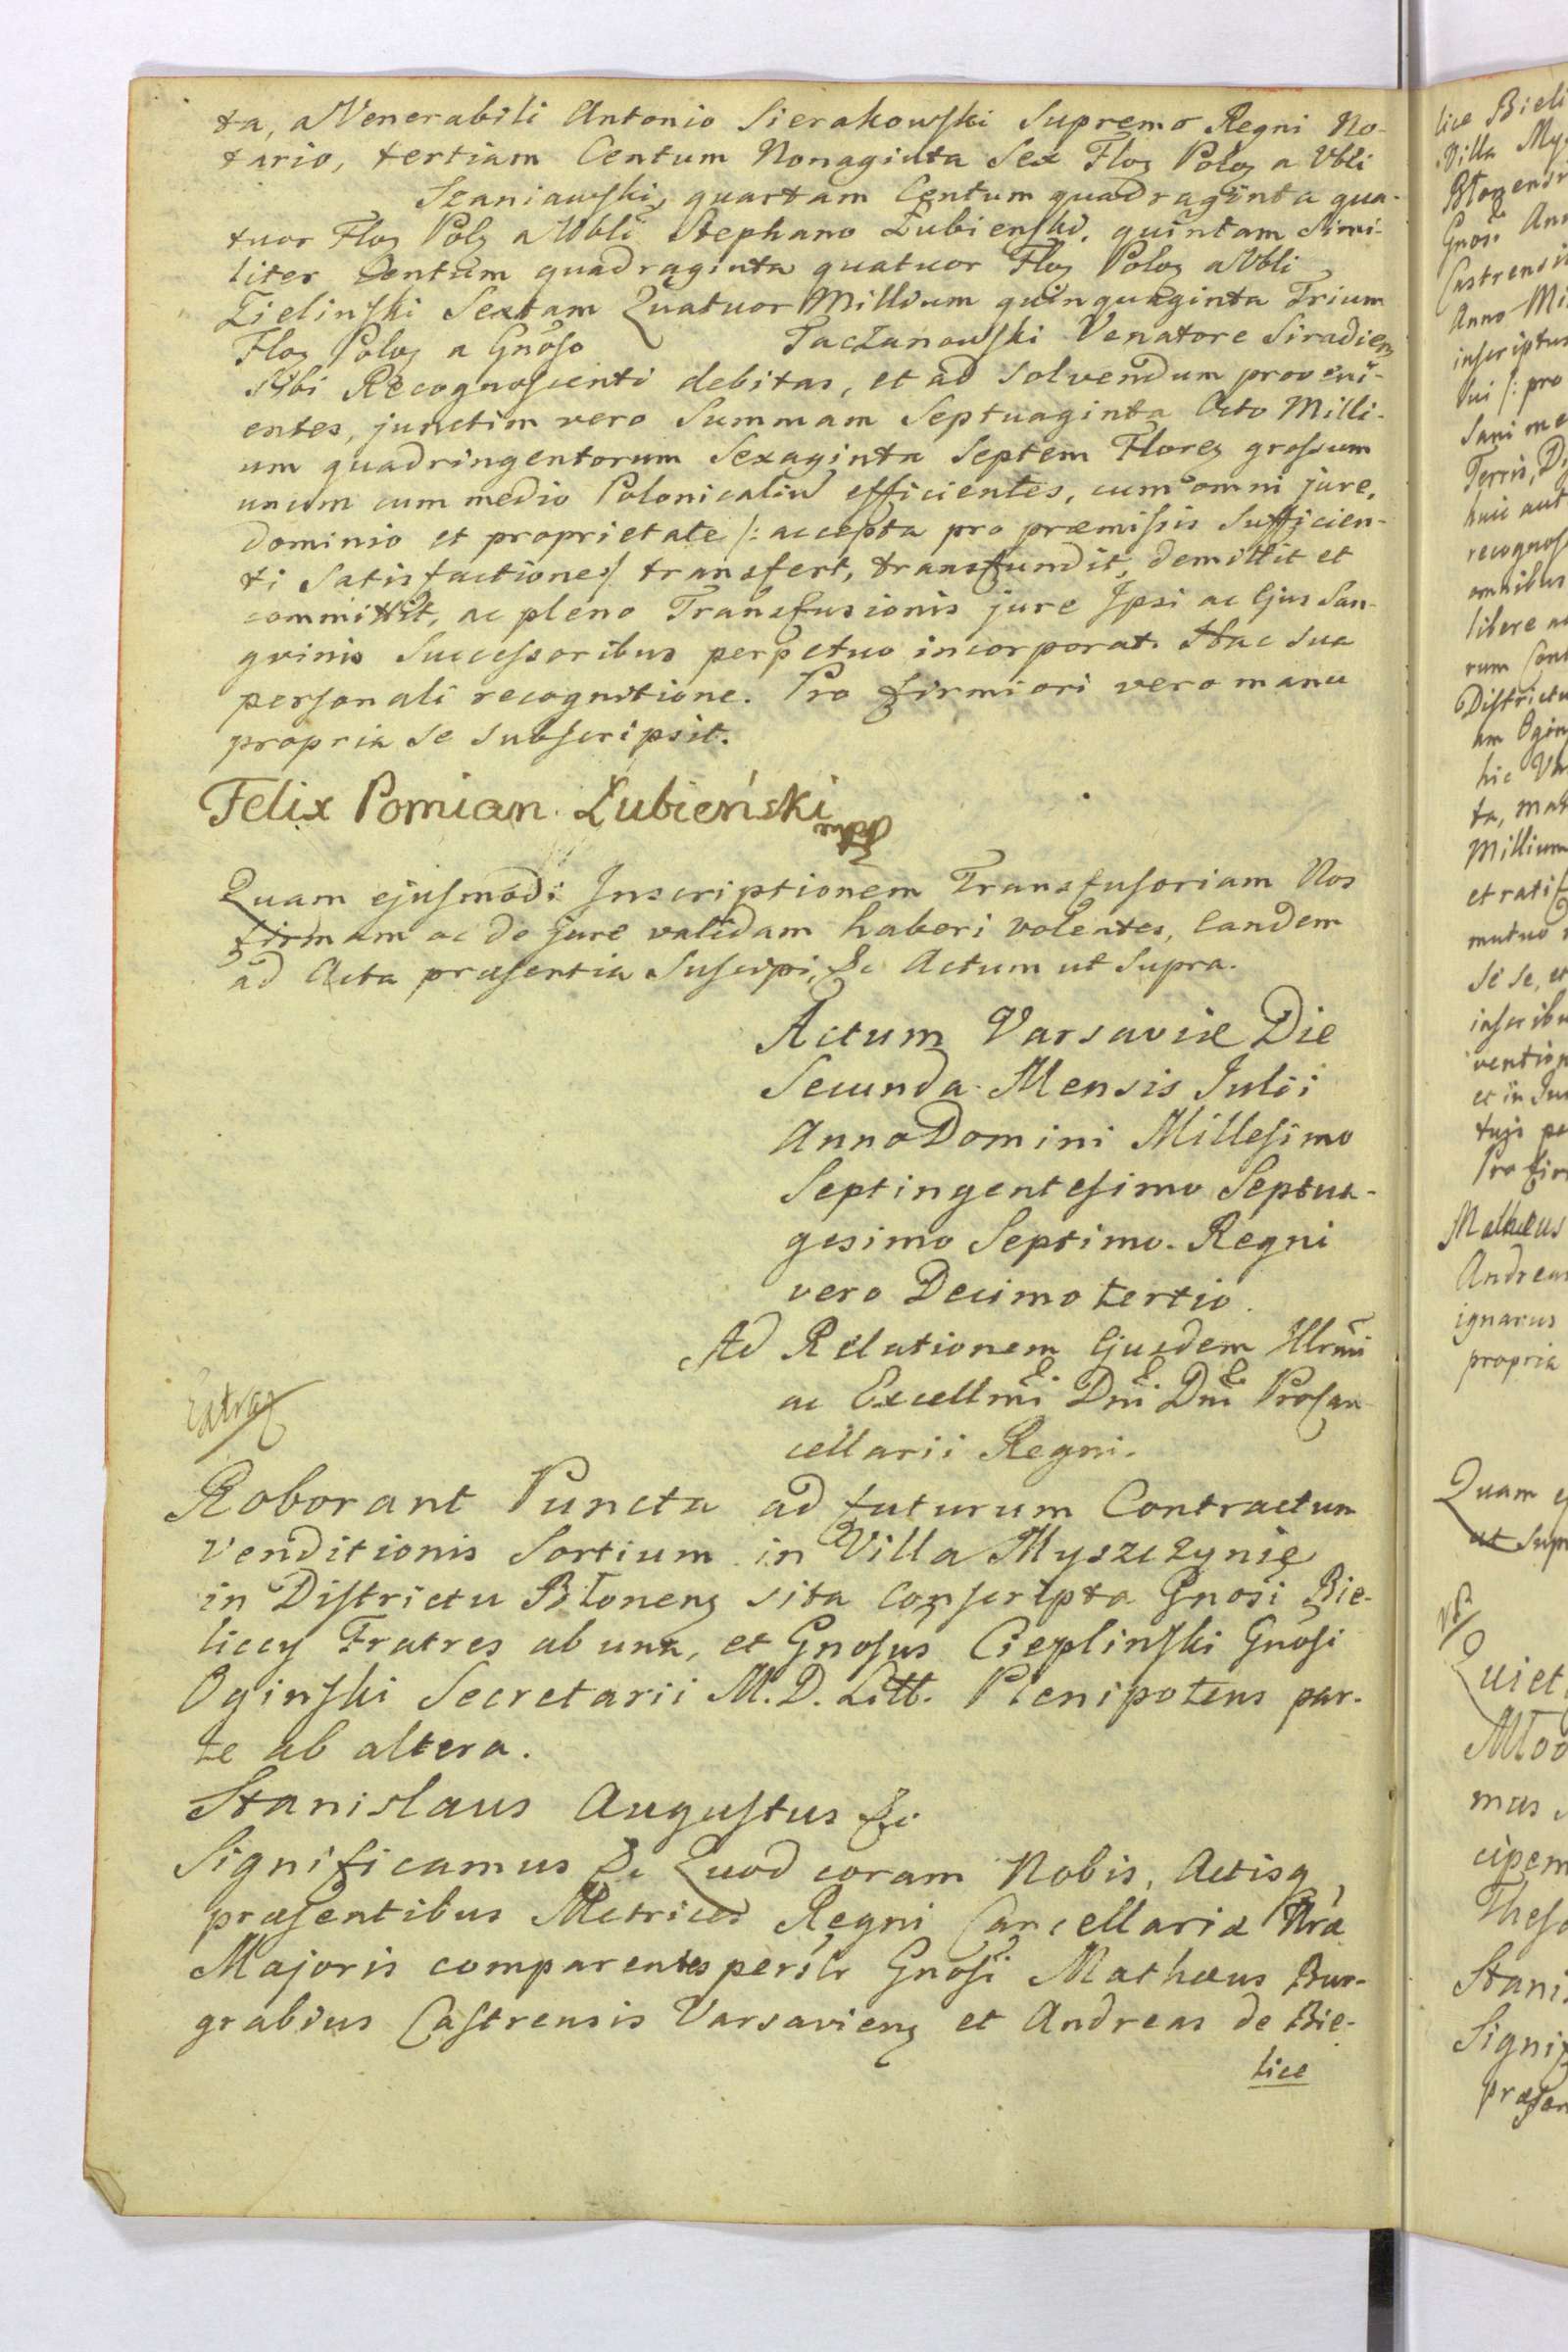 ta, a Venerabili Antonio Sierakowski Supremo Regni No-
tario, tertiam Centum Nonaginta Sex Floz Poloz a Vbli
Szaniawski, quartam Centum quadraginta qua-
tuor Floz Polz a Vbli Stephano Łubienski, quintam Simi-
liter Centum quadraginta quatuor Floz Poloz a Vbli
Zielinski Sextam Quatuor Millium quinquaginta Trium
Floz Poloz a Gnoso Taczanowski Venatore Siradienz
Sibi Recognoscenti debitas, et ad Solvendum proveni-
entes, junctim vero Summam Septuaginta Octo Milli-
um quadringentorum Sexaginta Septem Florez grossum
unum cum medio Polonicaliu efficientes, cum omni jure,
dominio et proprietate /: accepta pro præmissis Sufficien-
ti Satisfactione :/ transfert, transfundit, demittit et
committit, ac pleno Transfusionis jure Ipsi ac Ejus San-
gvinis Successoribus perpetuo incorporat. Hac Sua
personali recognitione. Pro firmiori vero manu
propria Se Subscripsit.
Felix Pomian Łubieński mpp
Quam ejusmodi Inscriptionem Transfusoriam Nos
firmam ac de jure validam haberi volentes, Eandem
ad Acta præsentia Suscipi, &c Actum ut Supra.
Actum Varsaviæ Die
Secunda Mensis Julii
Anno Domini Millesimo
Septingentesimo Septua-
gesimo Septimo. Regni
vero Decimo tertio.
Ad Relationem Ejusdem Illrmi
ac Excellmi Dni Dni Procan
cellarii Regni.
Extraz
Roborant Puncta ad futurum Contractum
Venditionis Sortium in Villa Myszczynie
in Districtu Błonenz sita Conscripta Gnosi Bie-
liccy Fratres ab una, et Gnosus Cieplinski Gnosi
Oginski Secretarii M. D. Litt. Plenipotens par-
te ab altera.
Stanislaus Augustus &c
Significamus &c Quod coram Nobis, Actisq,
præsentibus Metrices Regni Cancellariæ Nræ
Majoris comparentes persłr Gnosi Mathæus Bur-
grabius Castrensis Varsavienz et Andreas de Bie-
lice
lice Bieli
Villa My
Gnosi Ann
Castrensi
Anno Mi
inscriptus
Terris, D
recognos
omnibus
libere a
Districtu
am Ogin
ta, ma
Millium
et ratif
mutuo
se se, et
et in Ju
Mathæus
Andreas
ignarus
propria
Quam e
ut Sup
Quiet
Mło
mus
cipem
Thes
Stani
Signif
præsen